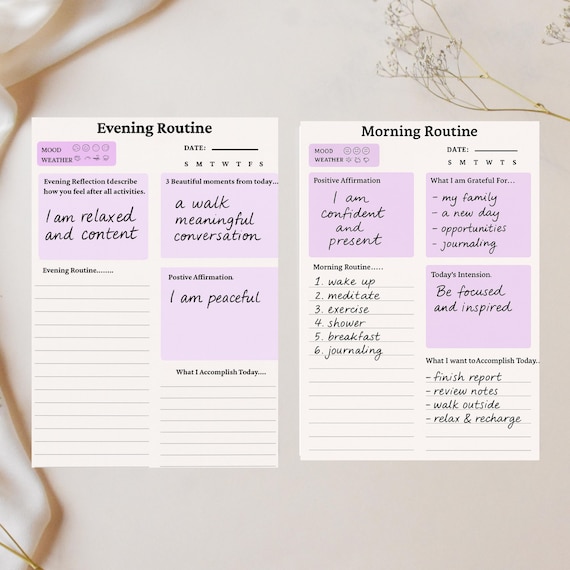 Evening Routine
MOOD
WEATHER
DATE:
S M T W T F S
Evening Reflection (describe
how you feel after all activities.
I am relaxed
and content
3 Beautiful moments from today...
a walk
meaningful
conversation
Evening Routine........
Postive Affirmation
I am peaceful
What I Accomplish Today....
Morning Routine
MOOD
WEATHER
DATE:
S M T W T S
Positive Affirmation
I am
confident
and
present
What I am Grateful For...
- my family
- a new day
- opportunities
- journaling
Morning Routine.....
1. wake up
2. meditate
3. exercise
4. shower
5. breakfast
6. journaling
Today's Intension
Be focused
and inspired
What I want to Accomplish Today..
- finish report
- review notes
- walk outside
- relax & recharge